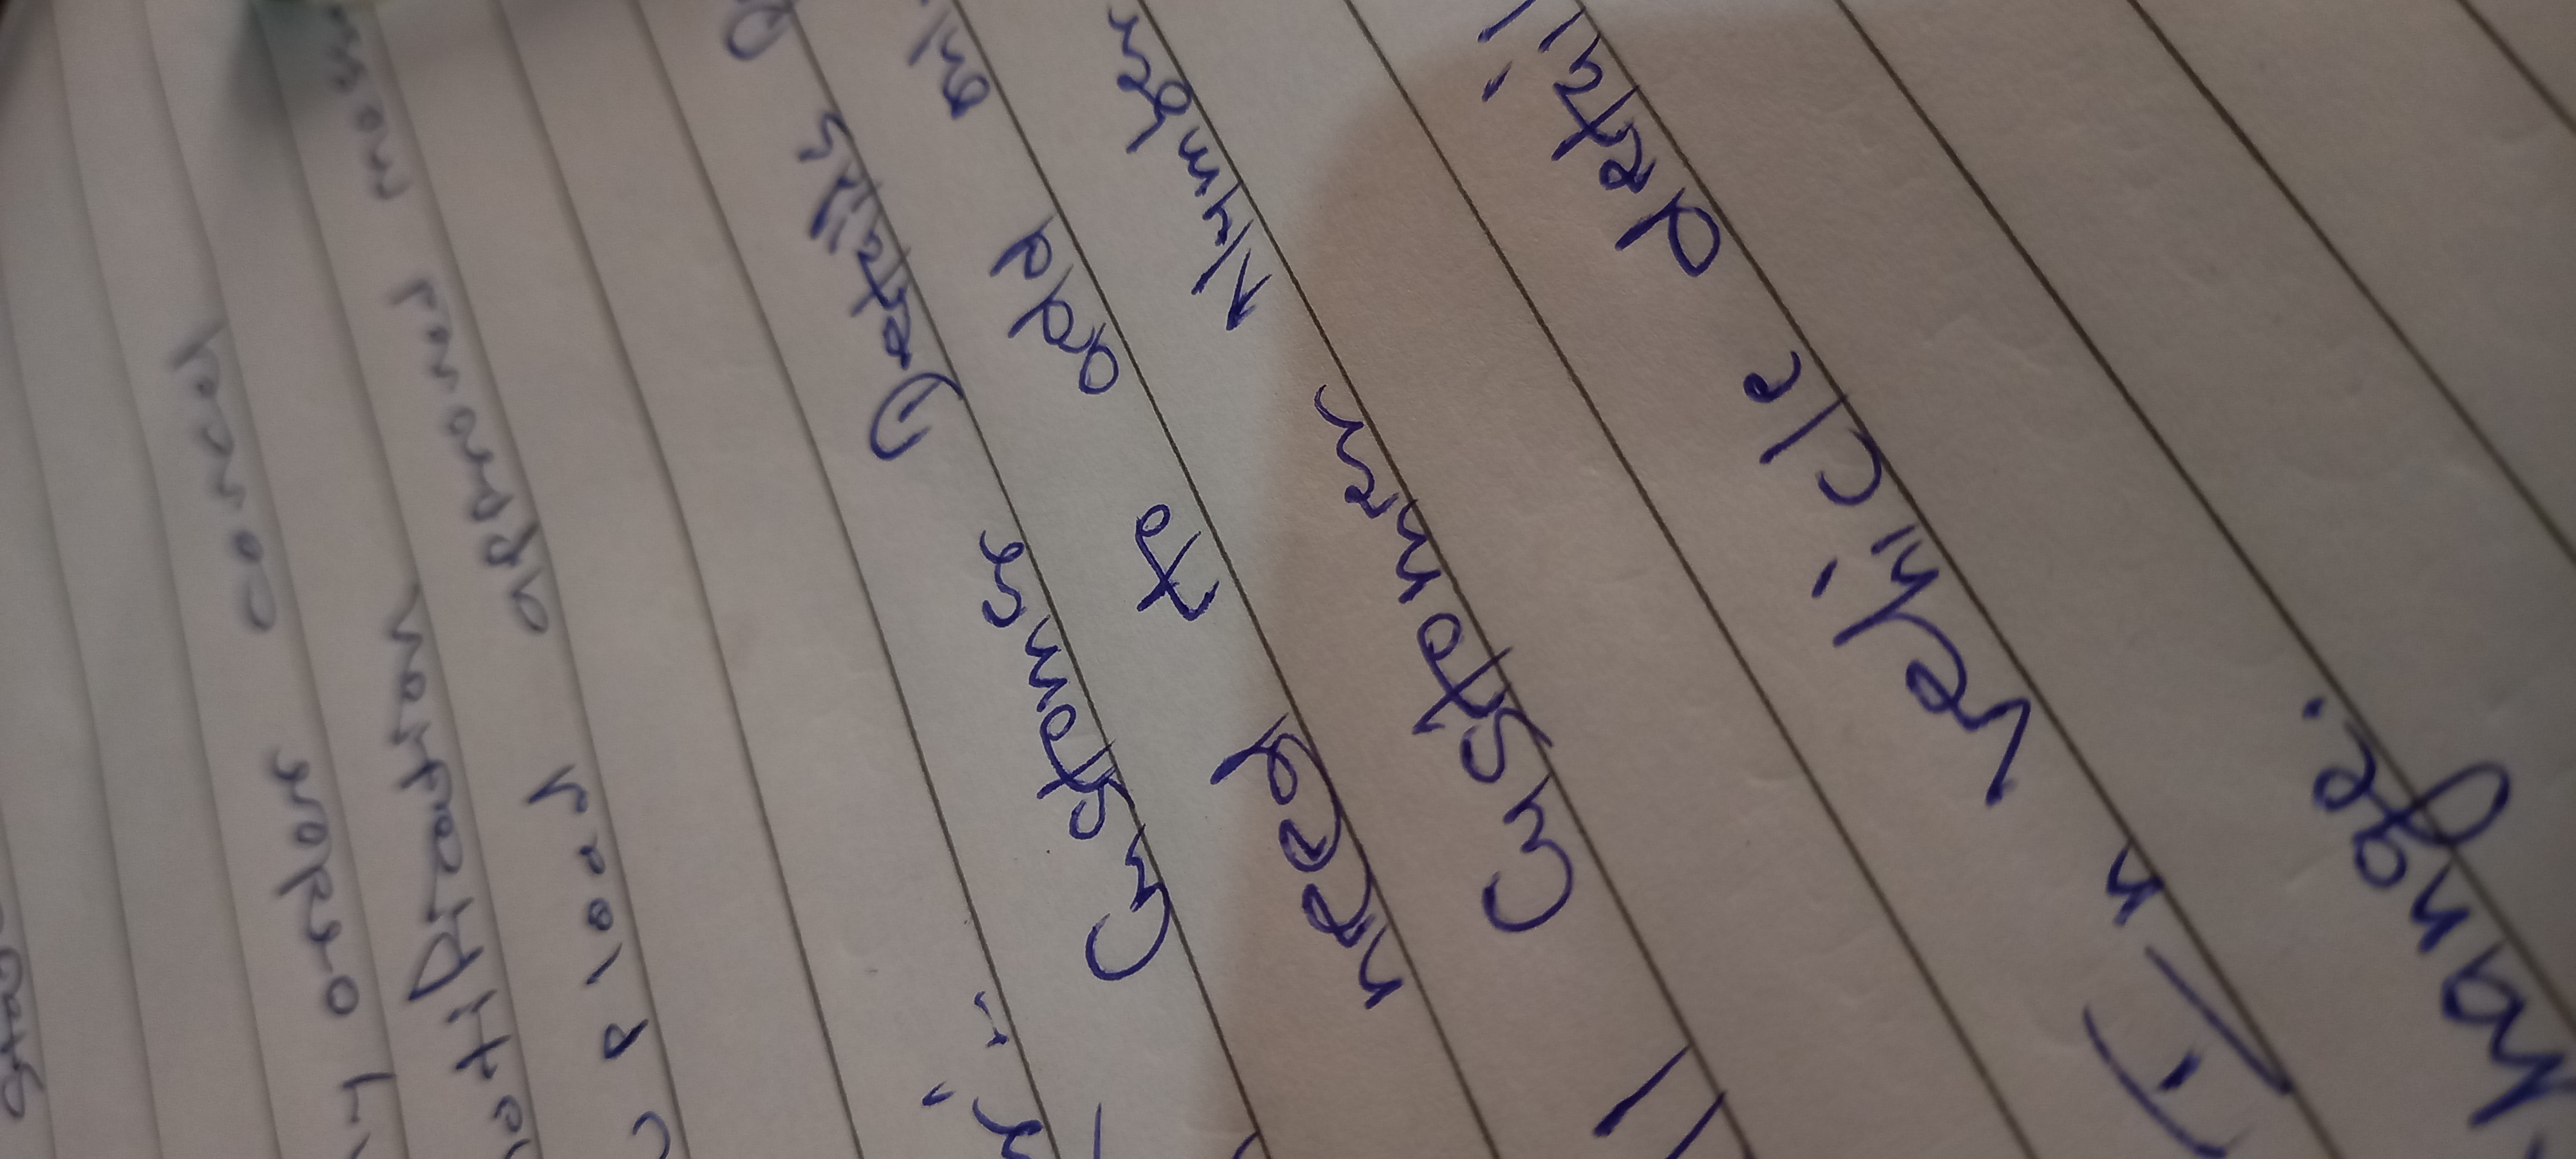 order cancel
notification
upload approved
Customer Details
need to add
Customer Number
In vehicle detail
hange.